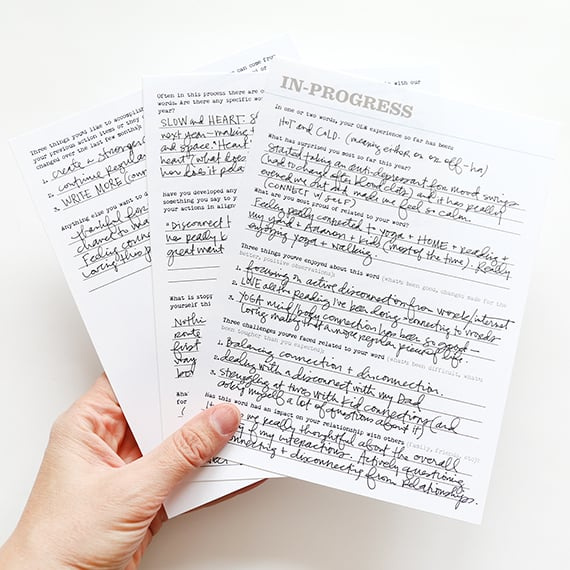 Three things you'd like to accomplish
your previous action items or they
changed over the last few months
1. create a stronger
2. continue regular
3. WRITE MORE
Anything else you want to
thankful for
chance to
Feeling conn
loving this
can come from
Often in this process there are o
words. Are there any specific wor
year?
SLOW and HEART.
next year - making t
and space. "Heart"
heart? what does
how does it rela
Have you developed any
something you say to y
your actions in align
"Disconnect t
has really
great mant
What is stopp
yourself thi
Nothi
route
first
way
What
for
with our
IN-PROGRESS
In one or two words, your OLW experience so far has been:
HOT and COLD. (meaning either on or off - ha)
What has surprised you most so far this year?
Started taking an anti-depressant for mood swings
(had to change after blood clots) and it has really
evened me out and made me feel so calm.
(CONNECT w/ SELF)
What are you most proud of related to your word?
Feeling really connected to yoga + HOME + reading +
my yard + Aaron + kid (most of the time). Really
enjoying yoga + walking.
Three things you've enjoyed about this word (what's been good, changes made for the
better, positive observations):
1. focusing on active disconnection from words/internet
2. LOVE all the reading I've been doing - connecting to words
3. YOGA mind/body connection has been so good -
loving making that a more regular piece of life.
Three challenges you've faced related to your word (what's been difficult, what's
been tougher than you expected):
1. Balancing connection + disconnection.
2. dealing with a disconnect with my Dad
3. Struggling at times with kid connecting (and
asking myself a lot of questions about it)
Has this word had an impact on your relationship with others (family, friends, etc)
me really thoughtful about the overall
of my interactions. Actively questioning
connecting + disconnecting from relationships.